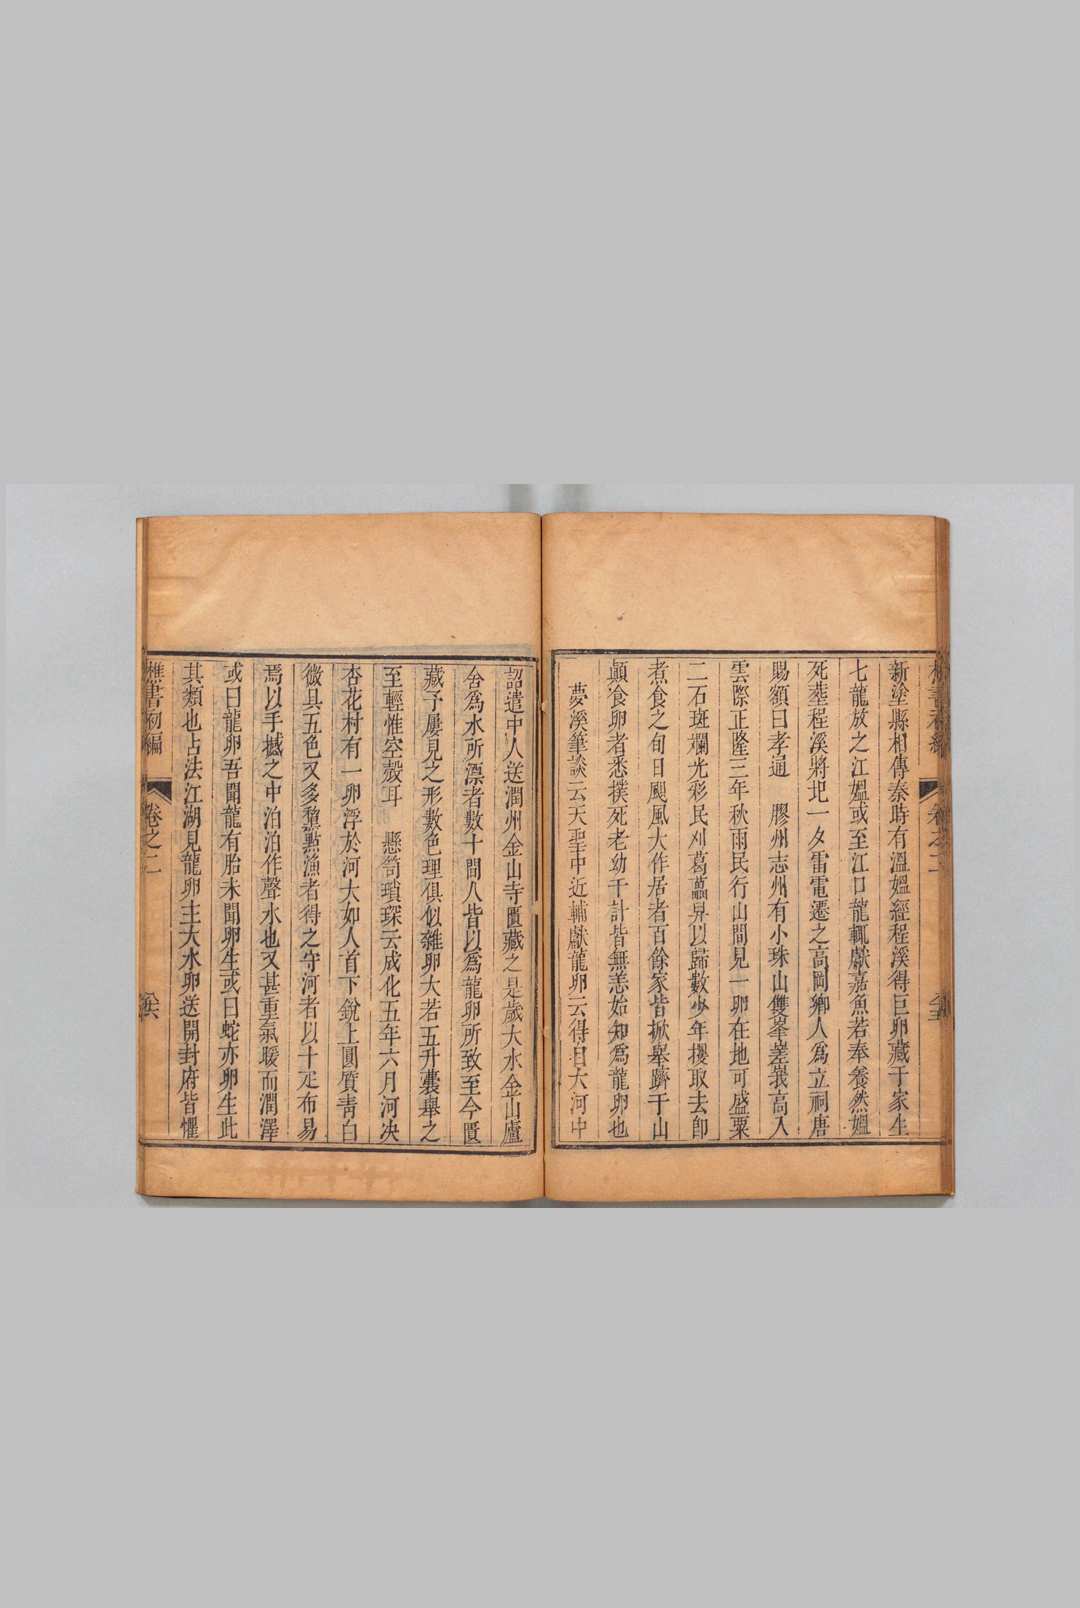 新塗縣相傳秦時有溫媼經程溪得巨卵藏于家生
七龍放之江媼或至江口龍輒獻嘉魚若奉養然媼
死塟程溪將圯一夕雷電遷之高岡鄉人爲立祠唐
賜額曰孝通　膠州志州有小珠山雙峯嵳峩高入
雲際正隆三年秋雨民行山間見一卵在地可盛粟
二石斑斕光彩民刈葛藟舁以歸數少年攫取去卽
煮食之旬日颶風大作居者百餘家皆掀舉躋于山
顚食卵者悉撲死老幼千計皆無恙始知爲龍卵也
夢溪筆談云天聖中近輔獻龍卵云得自大河中
詔遣中人送潤州金山寺匱藏之是歲大水金山廬
舍爲水所漂者數十間人皆以爲龍卵所致至今匱
藏予屢見之形數色理俱似雞卵大若五升囊舉之
至輕惟空殼耳　懸笥瑣探云成化五年六月河决
杏花村有一卵浮於河大如人首下銳上圓質靑白
微具五色又多黧㸃漁者得之守河者以十疋布易
焉以手撼之中泊泊作聲水也又甚重氣暖而潤澤
或曰龍卵吾聞龍有胎未聞卵生或曰蛇亦卵生此
其類也占法江湖見龍卵主大水卵送開封府皆懼
樵書初編　卷之二　六